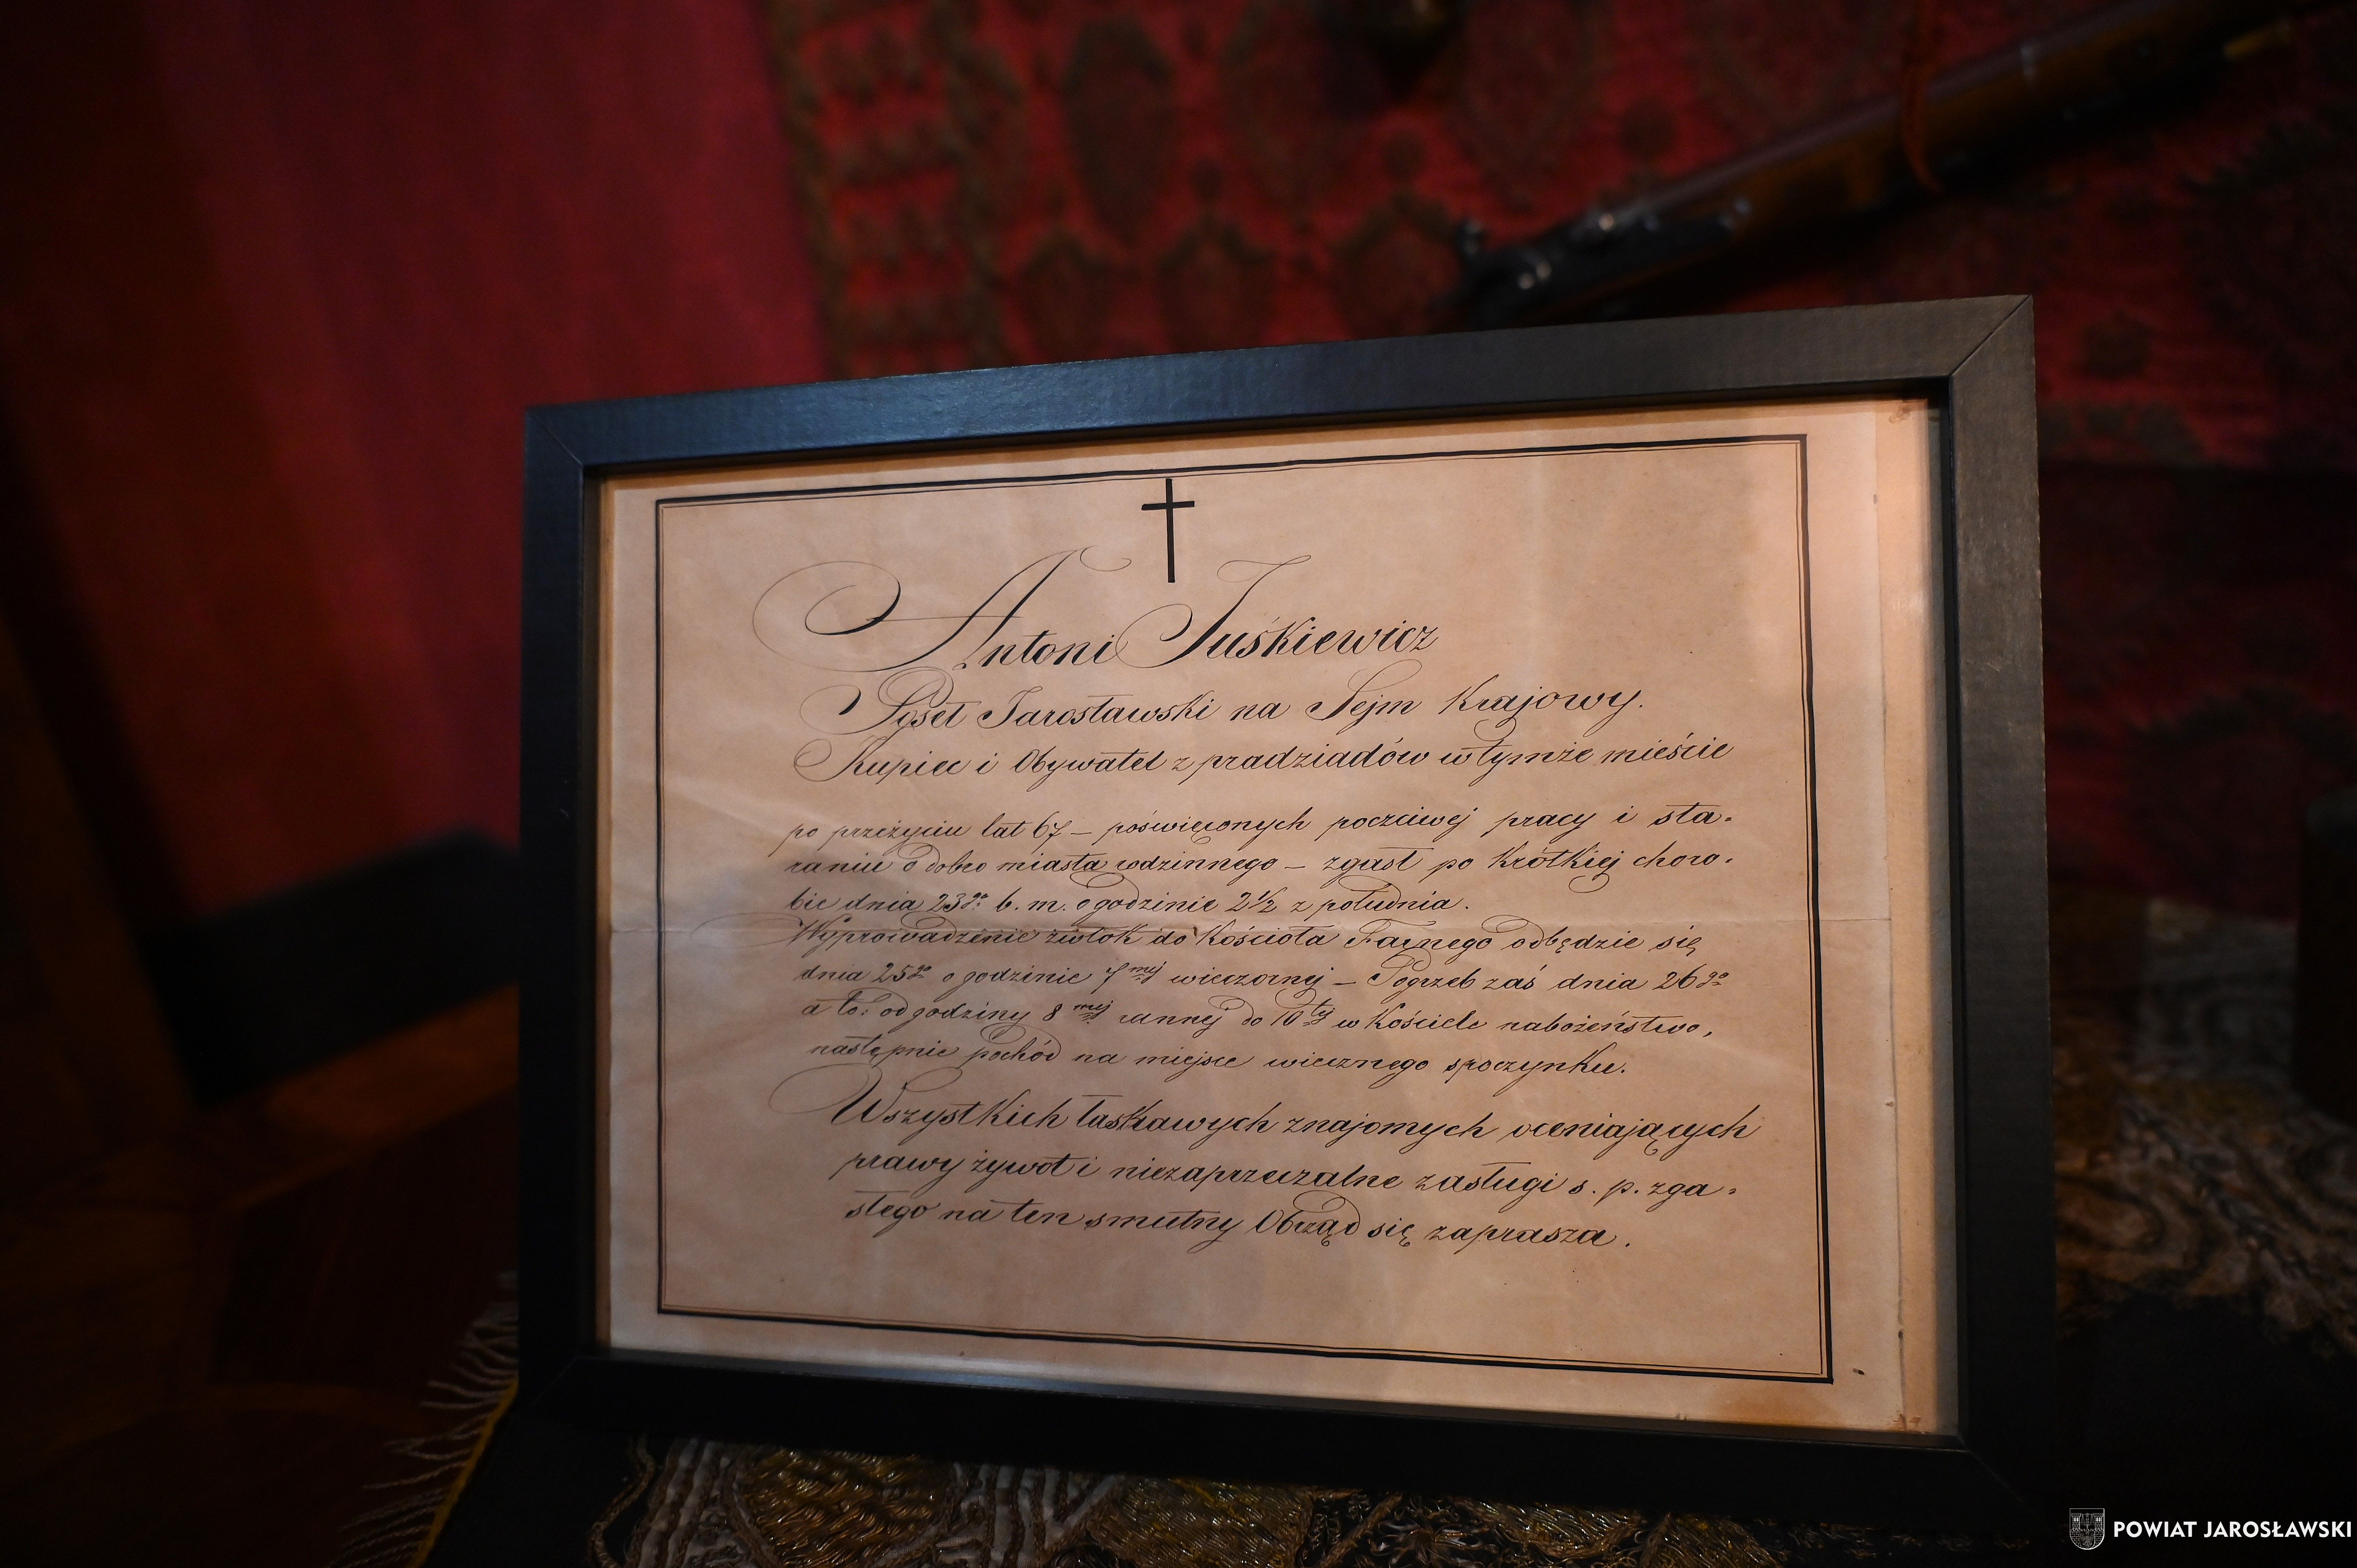 Antoni Juśkiewicz
Poseł Jarosławski na Sejm Krajowy.
Kupiec i Obywatel z pradziadów w tymże mieście
po przeżyciu lat 67 – poświęconych poczciwej pracy i sta-
raniu o dobro miasta rodzinnego – zgasł po krótkiej choro-
bie dnia 23go b. m. o godzinie 2 1/2 z południa.
Wyprowadzenie zwłok do Kościoła Farnego odbędzie się
dnia 25go o godzinie 7mej wieczornej – Pogrzeb zaś dnia 26go
a to: od godziny 8mej rannej do 10tej w Kościele nabożeństwo,
następnie pochód na miejsce wiecznego spoczynku.
Wszystkich łaskawych znajomych oceniających
prawy żywot i niezaprzeczalne zasługi s. p. zga-
słego na ten smutny Obrząd się zaprasza.
POWIAT JAROSŁAWSKI